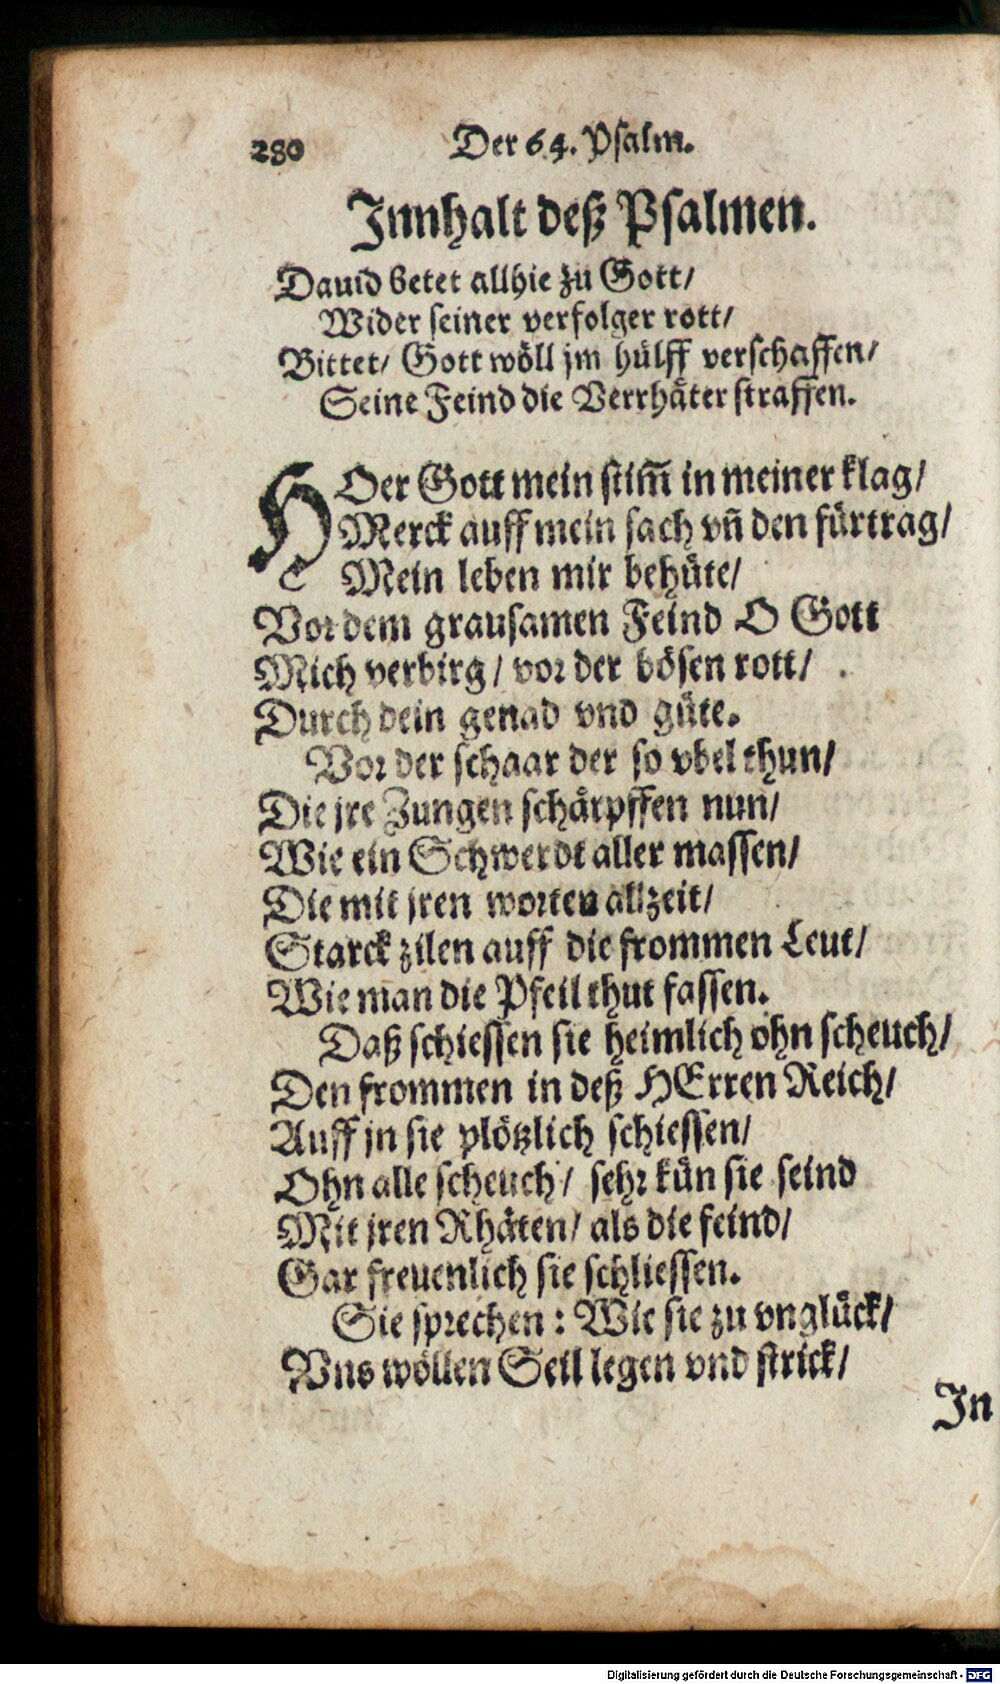 280 Der 64. Psalm.
Innhalt deß Psalmen.
Dauid betet allhie zu Gott/
Wider seiner verfolger rott/
Bittet/ Gott wöll jm hülff verschaffen/
Seine Feind die Verrhäter straffen.
HOer Gott mein stim̃ in meiner klag/
Merck auff mein sach vñ den fürtrag/
C Mein leben mir behüte/
Vor dem grausamen Feind O Gott
Mich verbirg/ vor der bösen rott/
Durch dein genad vnd güte.
Vor der schaar der so vbel thun/
Die jre Zungen schärpffen nun/
Wie ein Schwerdt aller massen/
Die mit jren worten allzeit/
Starck zilen auff die frommen Leut/
Wie man die Pfeil thut fassen.
Daß schiessen sie heimlich ohn scheuch/
Den frommen in deß HErren Reich/
Auff jn sie plötzlich schiessen/
Ohn alle scheuch/ sehr kün sie seind
Mit jren Rhäten/ als die feind/
Gar freuenlich sie schliessen.
Sie sprechen: Wie sie zu vnglück/
Vns wöllen Seil legen vnd strick/
In
Digitalisierung gefördert durch die Deutsche Forschungsgemeinschaft - DFG